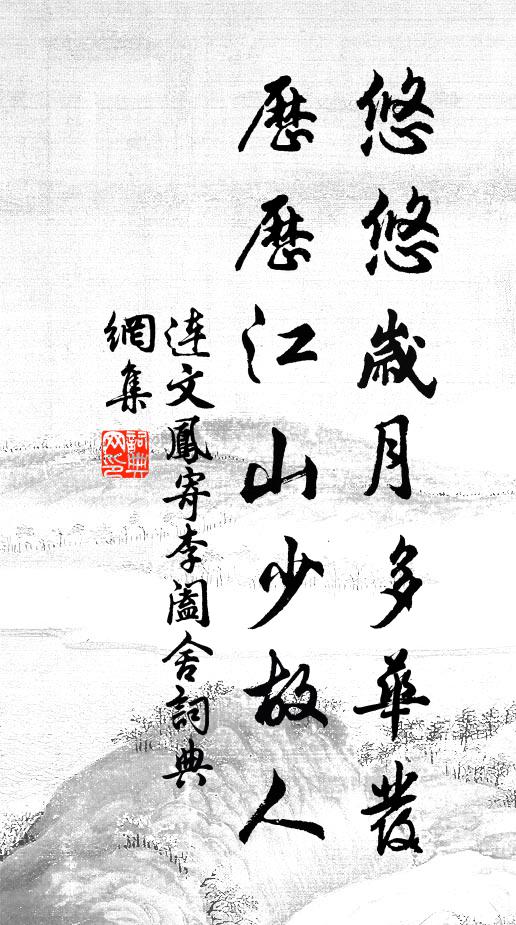 悠悠歲月多華發
歷歷江山少故人
連文鳳寄李闔舍詞典
網集
詞典
网印